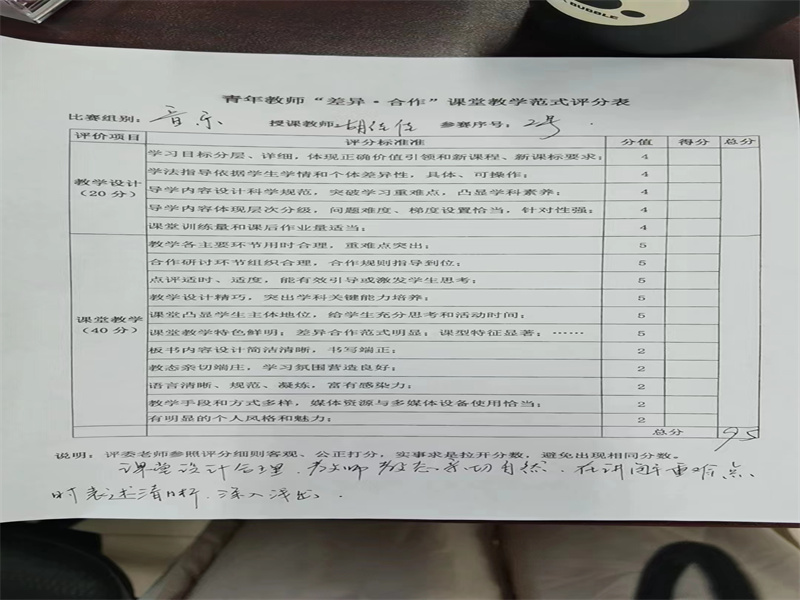 BUBBLE
青年教师“差异·合作”课堂教学范式评分表
比赛组别: 音乐 授课教师: 胡佳佳 参赛序号: 2号.
评价项目 评分标准准 分值 得分 总分
教学设计(20分)
学习目标分层、详细,体现正确价值引领和新课程、新课标要求; 4
学法指导依据学生学情和个体差异性,具体、可操作; 4
导学内容设计科学规范,突破学习重难点,凸显学科素养; 4
导学内容体现层次分级,问题难度、梯度设置恰当,针对性强; 4
课堂训练量和课后作业量适当; 4
课堂教学(40分)
教学各主要环节用时合理,重难点突出; 5
合作研讨环节组织合理,合作规则指导到位; 5
点评适时、适度,能有效引导或激发学生思考; 5
教学设计精巧,突出学科关键能力培养; 5
课堂凸显学生主体地位,给学生充分思考和活动时间; 5
课堂教学特色鲜明;差异合作范式明显;课型特征显著;…… 5
板书内容设计简洁清晰,书写端正; 2
教态亲切端庄,学习氛围营造良好; 2
语言清晰、规范、凝炼,富有感染力; 2
教学手段和方式多样,媒体资源与多媒体设备使用恰当; 2
有明显的个人风格和魅力; 2
总分 95
说明:评委老师参照评分细则客观、公正打分,实事求是拉开分数,避免出现相同分数。
课堂设计合理,教师教态亲切自然,在讲重难点
时表述清晰,深入浅出.